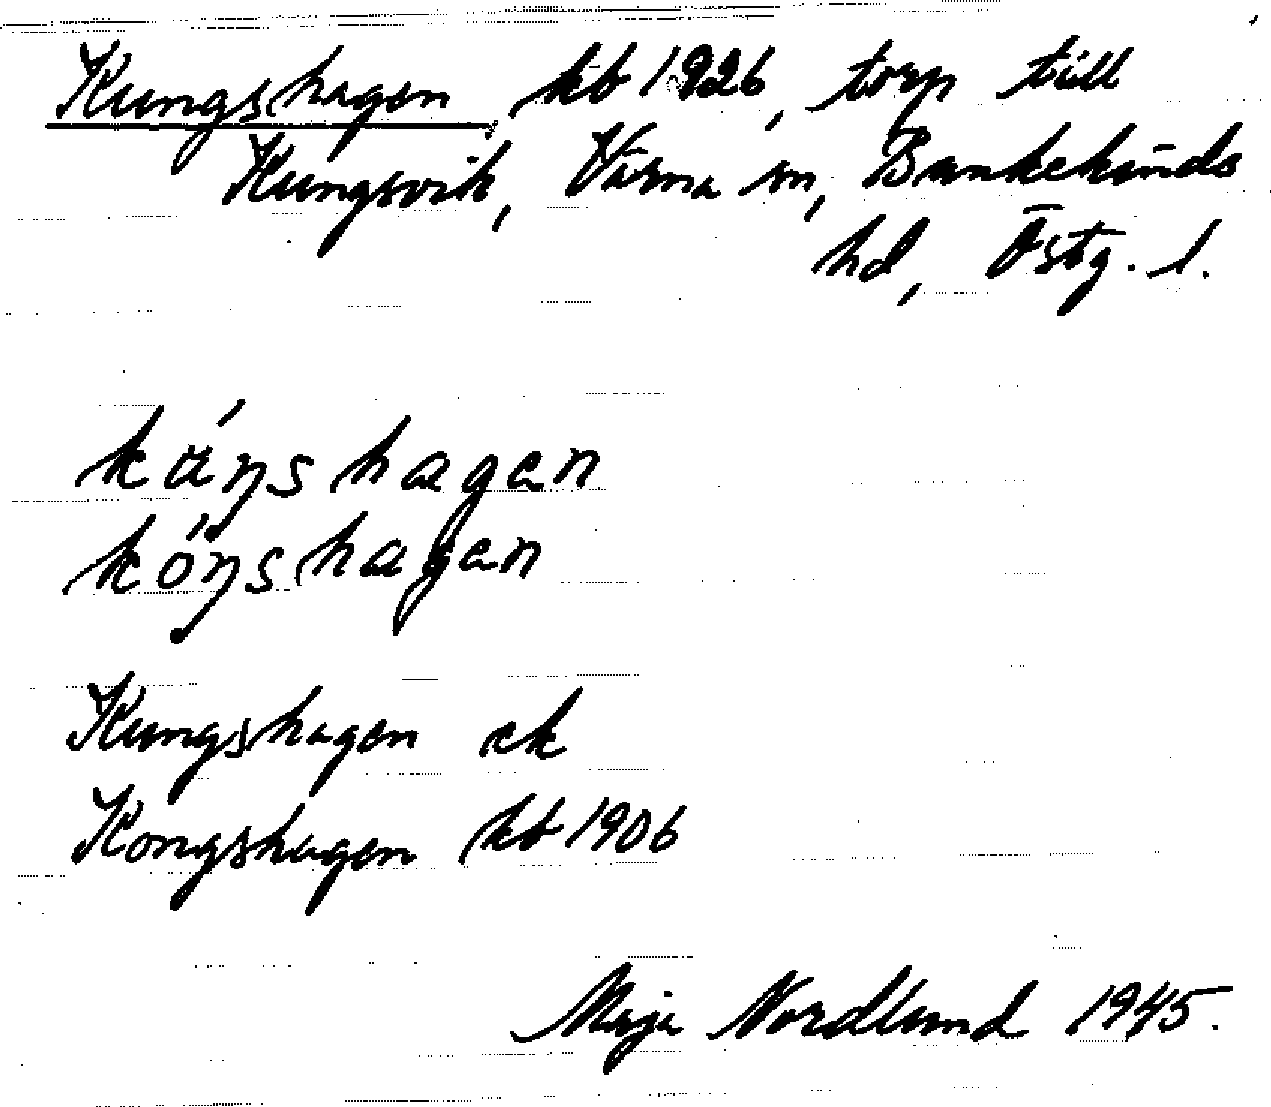 Kungshagen, kb 1926, torp till
Kungsvik, Värna sn, Bankekinds
hd, Östg. l.
káŋshagen
kóŋshagen
Kungshagen ek
Kongshagen kb 1906
Maja Nordlund 1945.